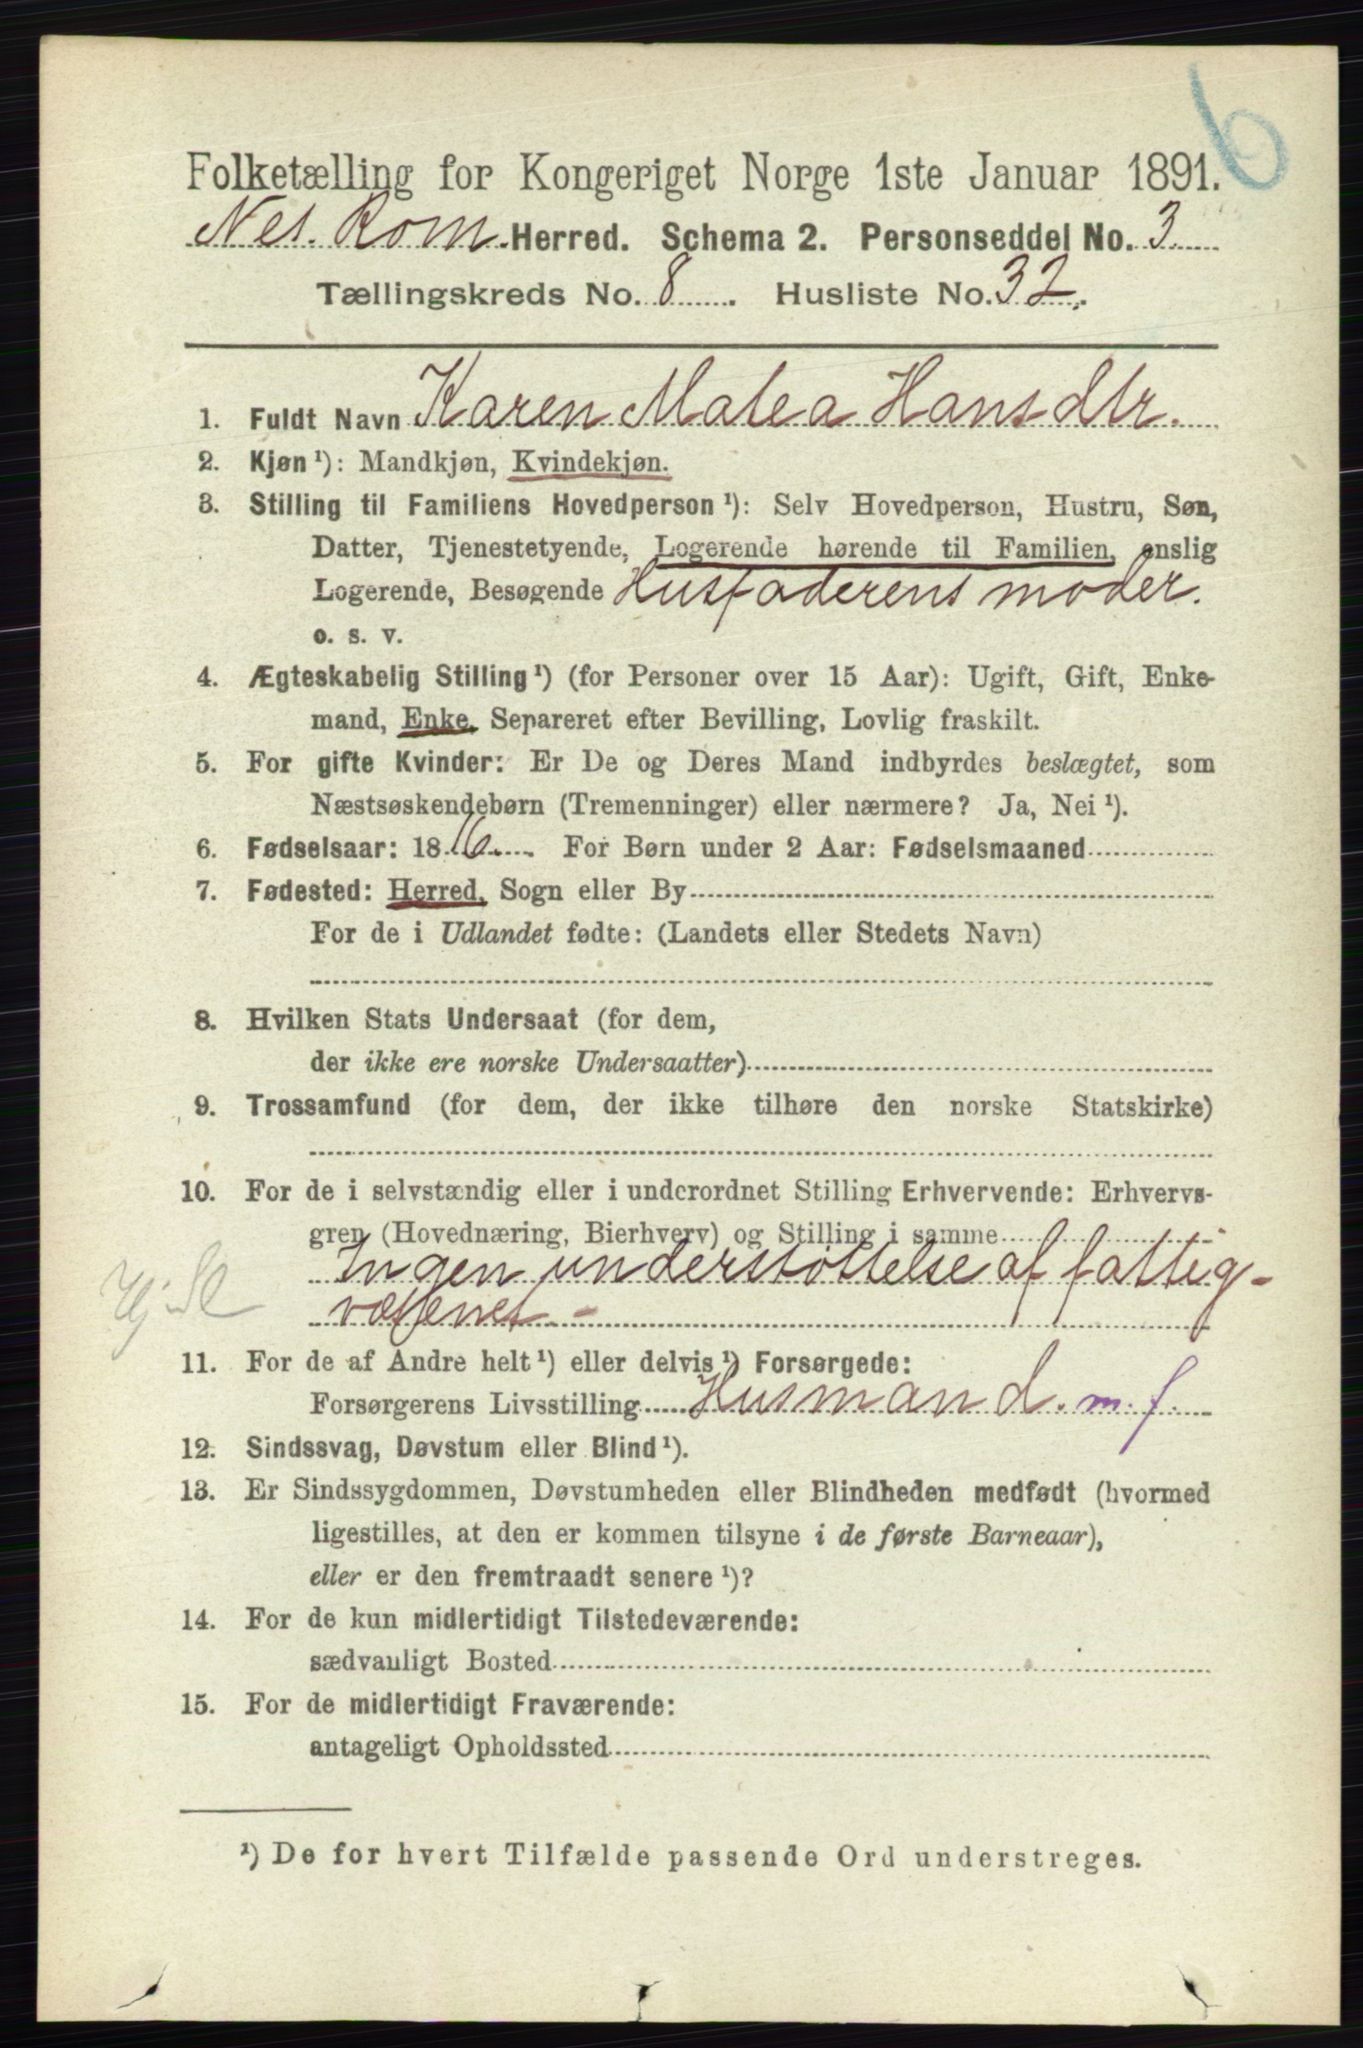 6
Folketælling for Kongeriget Norge 1ste Januar 1891.
Nes. Rom. Herred. Schema 2. Personseddel No. 3.
Tællingskreds No. 8. Husliste No. 32.
1. Fuldt Navn Karen Matea Hansdtr.
2. Kjøn ¹): Mandkjøn, Kvindekjøn.
3. Stilling til Familiens Hovedperson ¹): Selv Hovedperson, Hustru, Søn,
Datter, Tjenestetyende, Logerende hørende til Familien, enslig
Logerende, Besøgende Husfaderens moder.
o. s. v.
4. Ægteskabelig Stilling ¹) (for Personer over 15 Aar): Ugift, Gift, Enke-
mand, Enke, Separeret efter Bevilling, Lovlig fraskilt.
5. For gifte Kvinder: Er De og Deres Mand indbyrdes beslægtet, som
Næstsøskendebørn (Tremenninger) eller nærmere? Ja, Nei ¹).
6. Fødselsaar: 1816. For Børn under 2 Aar: Fødselsmaaned
7. Fødested: Herred, Sogn eller By
For de i Udlandet fødte: (Landets eller Stedets Navn)
8. Hvilken Stats Undersaat (for dem,
der ikke ere norske Undersaatter)
9. Trossamfund (for dem, der ikke tilhøre den norske Statskirke)
10. For de i selvstændig eller i underordnet Stilling Erhvervende: Erhvervs-
gren (Hovednæring, Bierhverv) og Stilling i samme
Ingen understøttelse af fattig-
væsenet -
11. For de af Andre helt ¹) eller delvis ¹) Forsørgede:
Forsørgerens Livsstilling Husmand. m. f.
12. Sindssvag, Døvstum eller Blind ¹).
13. Er Sindssygdommen, Døvstumheden eller Blindheden medfødt (hvormed
ligestilles, at den er kommen tilsyne i de første Barneaar),
eller er den fremtraadt senere ¹)?
14. For de kun midlertidigt Tilstedeværende:
sædvanligt Bosted
15. For de midlertidigt Fraværende:
antageligt Opholdssted
¹) De for hvert Tilfælde passende Ord understreges.